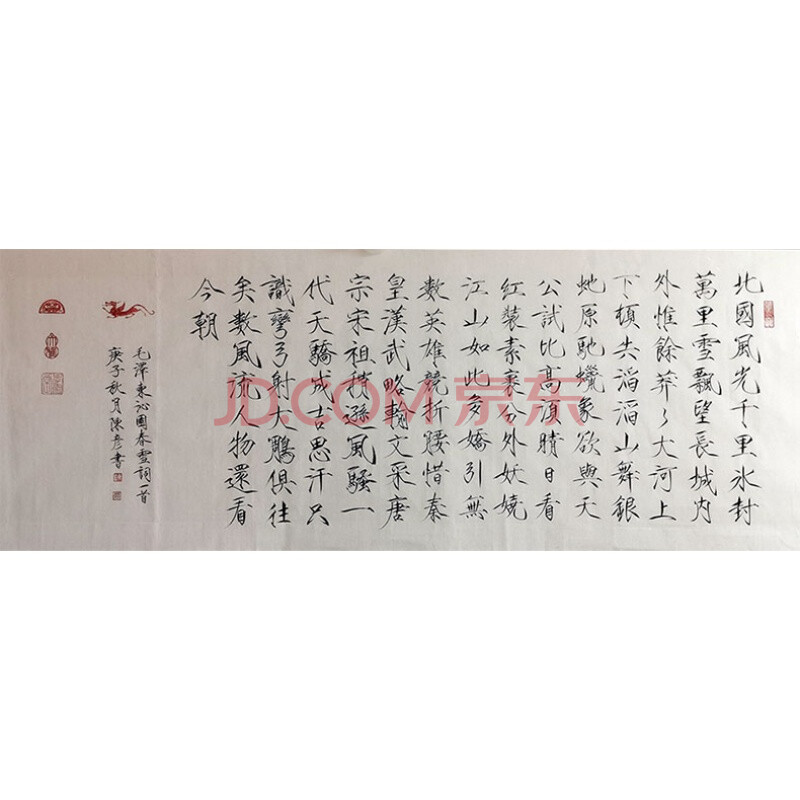 北國風光千里冰封
萬里雪飄望長城內
外惟餘莽〻大河上
下頓失滔滔山舞銀
虵原馳蠟象欲與天
公試比高須晴日看
紅裝素裹分外妖嬈
江山如此多嬌引無
數英雄競折腰惜秦
皇漢武略輸文采唐
宗宋祖稍遜風騷一
代天驕成吉思汗只
識彎弓射大鵰俱往
矣數風流人物還看
今朝
毛澤東沁園春雪詞一首
庚子秋月陳彥書
JD.COM 京东